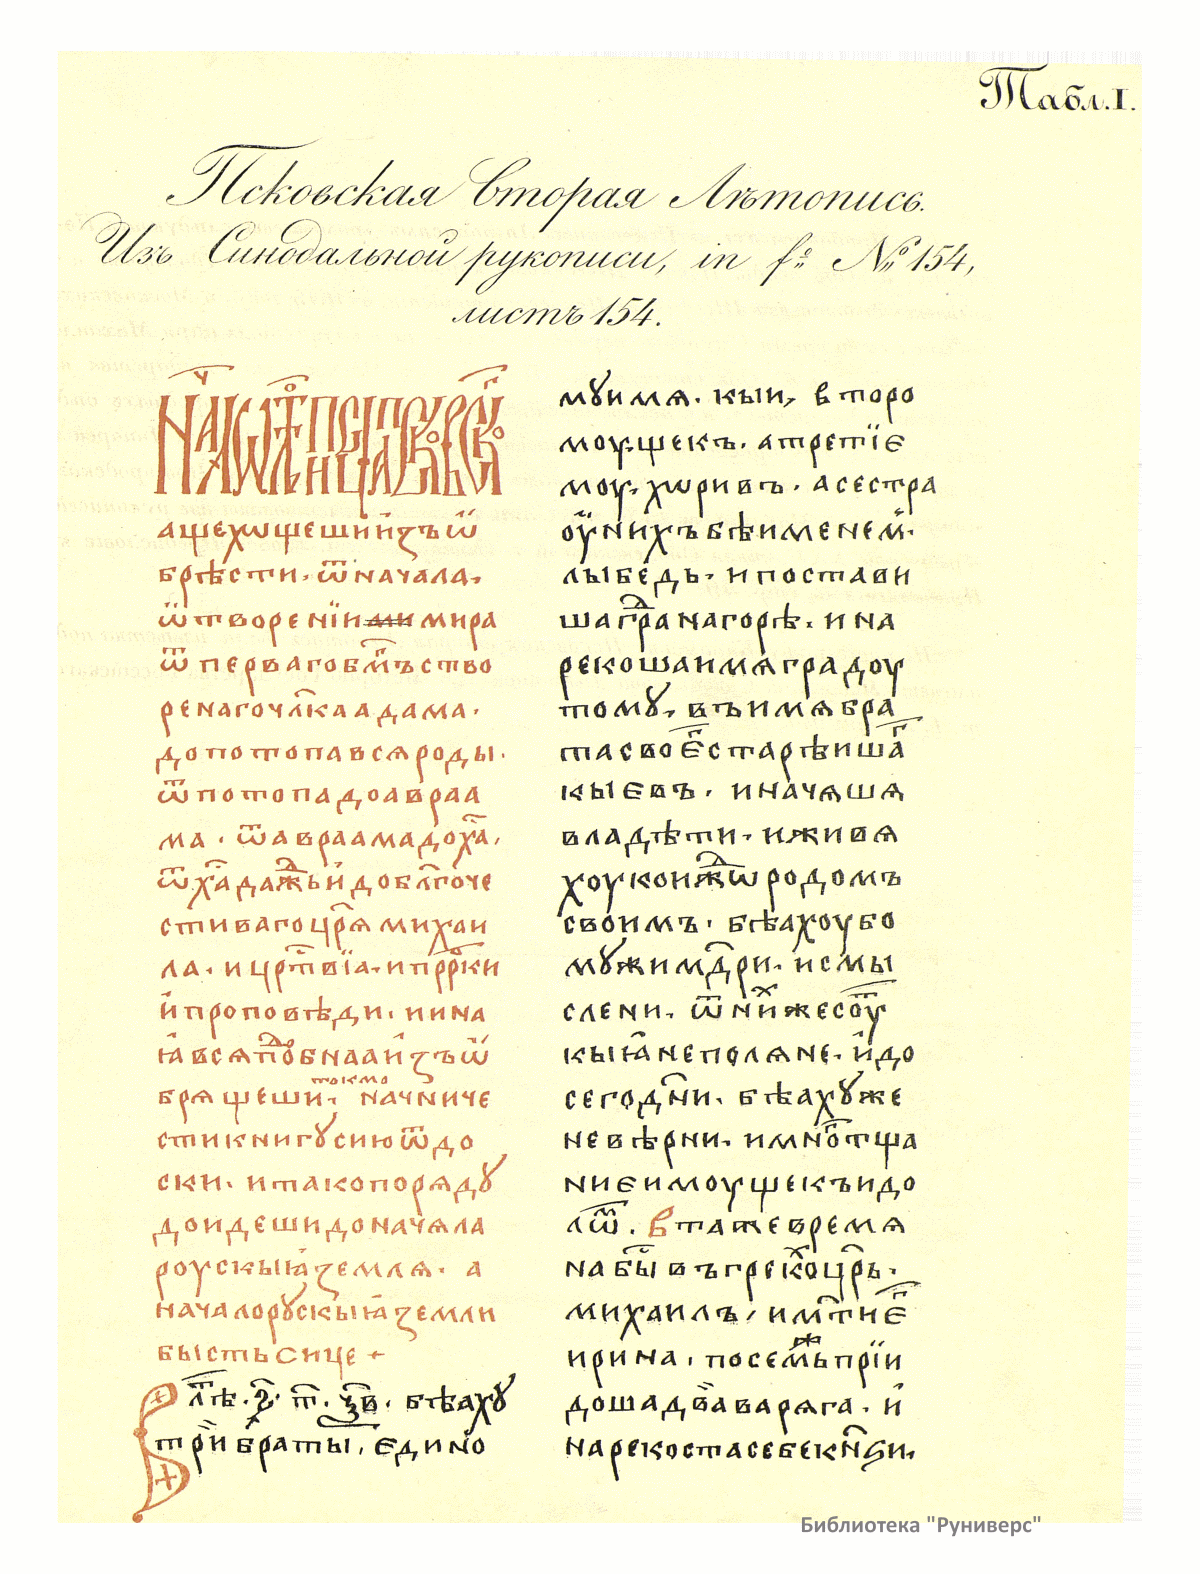 Табл. I.
Псковская вторая Лѣтопись.
Изъ Синодальной рукописи, in fº Nº 154,
листъ 154.
аще хѡщеши и҆ꙁъѡ
брѣсти. ѿначала,
ѿтворенїи ми мира
ѿперваго бг҃ъство
ренаго чл҃ка адама.
до потопа вся роды.
ѿпотопа до авраа
ма. ѿавраама до х҃а,
ѿ х҃а даже и҆ до бл҃гоче
стиваго цр҃ѧ михаи
ла. и црⷭ҇твїа. и прⷪ҇рки
и҆ проповѣди. и ина
ꙗ всѧ подⷪ҇бнаа и҆ꙁъѡ
брѧщеши. токмо начниче
сти книгꙋ сию ѿдо
ски. и тако порѧдꙋ
доидеши до начѧла
роускыꙗ ꙁемлѧ. а
начало рꙋскыꙗ ꙁемли
бысть сице +
В лѣⷮ. ҂ꙅ. т҃. ч҃в. бѣахꙋ
трїи браты, єдино
мꙋ имѧ. кыи, второ
моу, щекъ. а третїє
моу, хѡривъ. а сестра
оу҆ нихъ бѣ именемⷨ.
лыбедь. и постави
ша граⷣ на горѣ. и на
рекоша имѧ градоу
томꙋ, въ имѧ бра
та своєⷢ҇ старѣишаⷢ҇
кыєвъ. и начѧшѧ
владѣти. и живѧ
хоу коиждⷤо ѡ родомъ
своимъ. бѣахоу бо
мꙋжи мдⷣри. и смы
слени. ѿ нихⷯже соуⷮ
кыꙗне полѧне. и҆до
сего дн҃и. бѣахꙋ же
невѣрни. и мноⷢ҇ тща
ниє имоуще къ идо
лѡⷨ. В таже времѧ
на бы въ грекⷯо цр҃ь.
михаилъ, и мт҃и єⷢ҇
ирина. по семⷤь прїи
доша два варѧга. и҆
нарекостасе бе кнѧꙅи.
Библиотека "Руниверс"